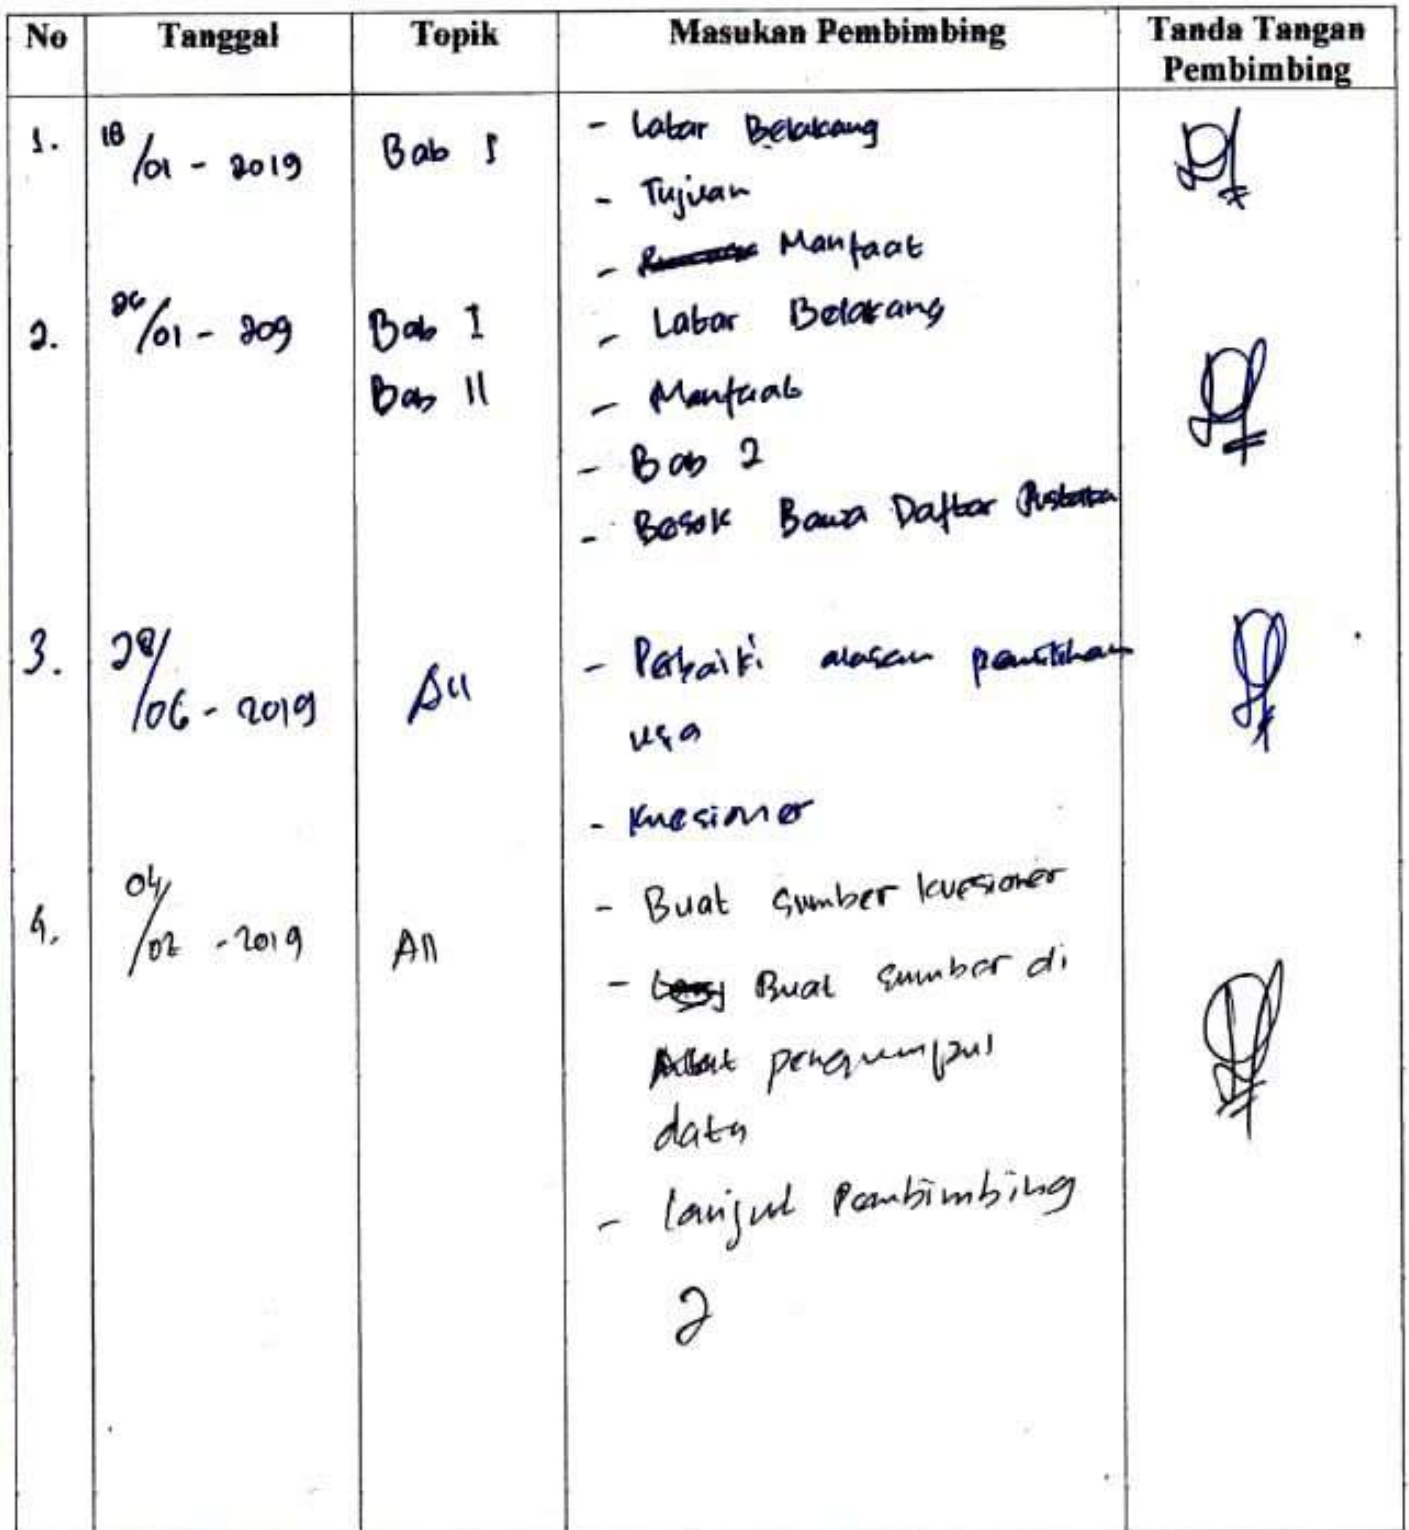 No Tanggal Topik Masukan Pembimbing Tanda Tangan Pembimbing
1. 18/01 - 2019 Bab I - Latar Belakang
- Tujuan
- Manfaat
2. 26/01 - 209 Bab I - Latar Belakang
Bab II - Manfaat
- Bab 2
- Besok Bawa Daftar Pustaka
3. 28/06 - 2019 All - Perbaiki alasan pemilihan
usa
- Kuesioner
4. 04/02 - 2019 All - Buat sumber kuesioner
- Buat sumber di
Alat pengumpul
data
- lanjut Pembimbing
2